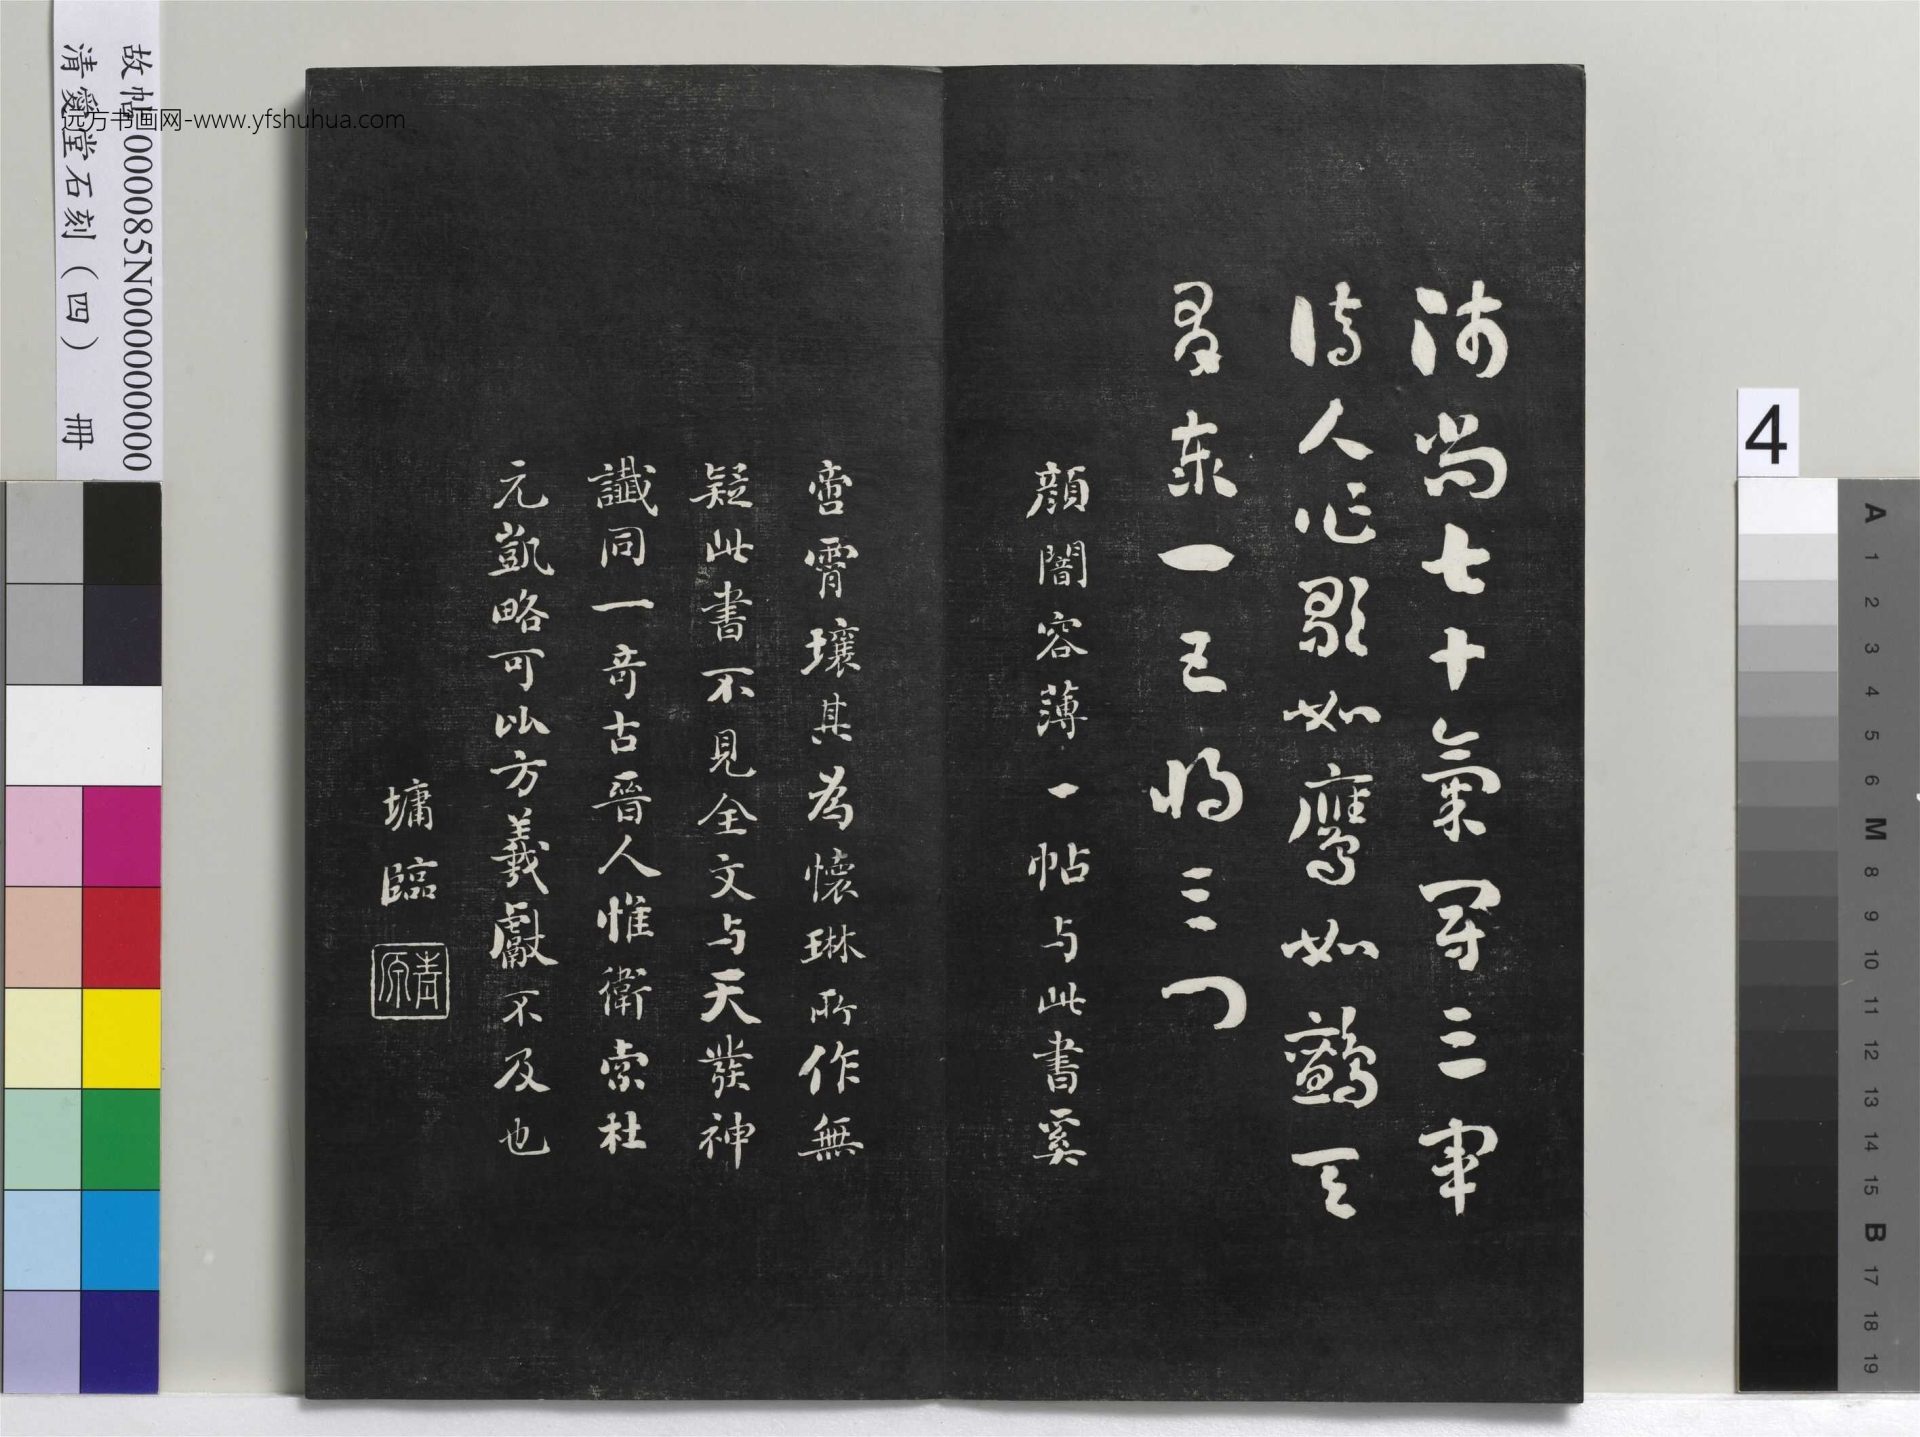 師尚七十氣冠三軍
詩人作歌如鷹如鸇天
有泰一五將三門
顏闇容薄一帖与此書奚
啻霄壤其為懷琳所作無
疑此書不見全文与天發神
讖同一奇古晉人惟衛索杜
元凱略可以方羲獻不及也
墉臨
青原
故帖000085N000000000
清愛堂石刻（四） 冊
远方书画网-www.yfshuhua.com
4
A
1
2
3
4
5
6
M
8
9
10
11
12
13
14
15
B
17
18
19